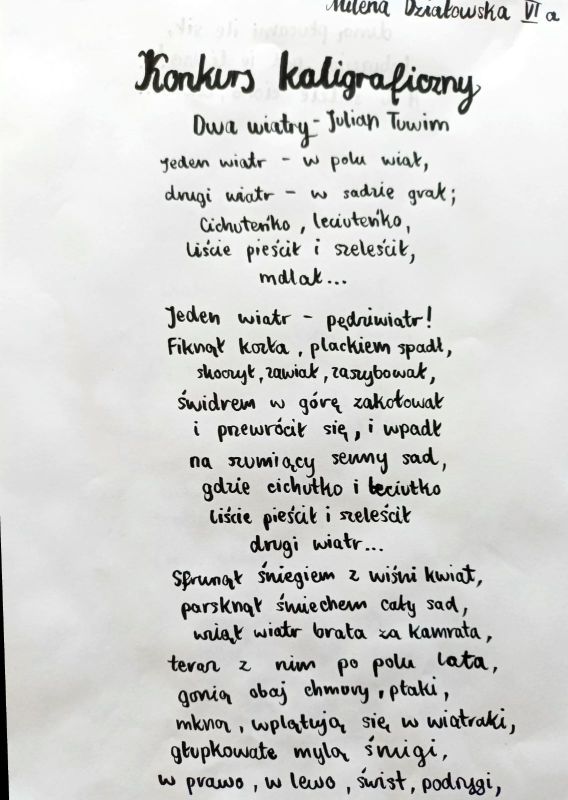 Milena Działowska VI a
Konkurs kaligraficzny
Dwa wiatry - Julian Tuwim
Jeden wiatr - w polu wiał,
drugi wiatr - w sadzie grał;
Cichuteńko, leciuteńko,
liście pieścił i szeleścił,
mdlał...
Jeden wiatr - pędziwiatr!
Fiknął kozła, plackiem spadł,
skoczył, zawiał, zaszybował,
świdrem w górę zakołował
i przewrócił się, i wpadł
na szumiący senny sad,
gdzie cichutko i leciutko
liście pieścił i szeleścił
drugi wiatr...
Sfrunął śniegiem z wiśni kwiat,
parsknął śmiechem cały sad,
wziął wiatr brata za kamrata,
teraz z nim po polu lata,
gonią obaj chmury, ptaki,
mkną, wplątują się w wiatraki,
głupkowate mylą śmigi,
w prawo, w lewo, świst, podrygi,